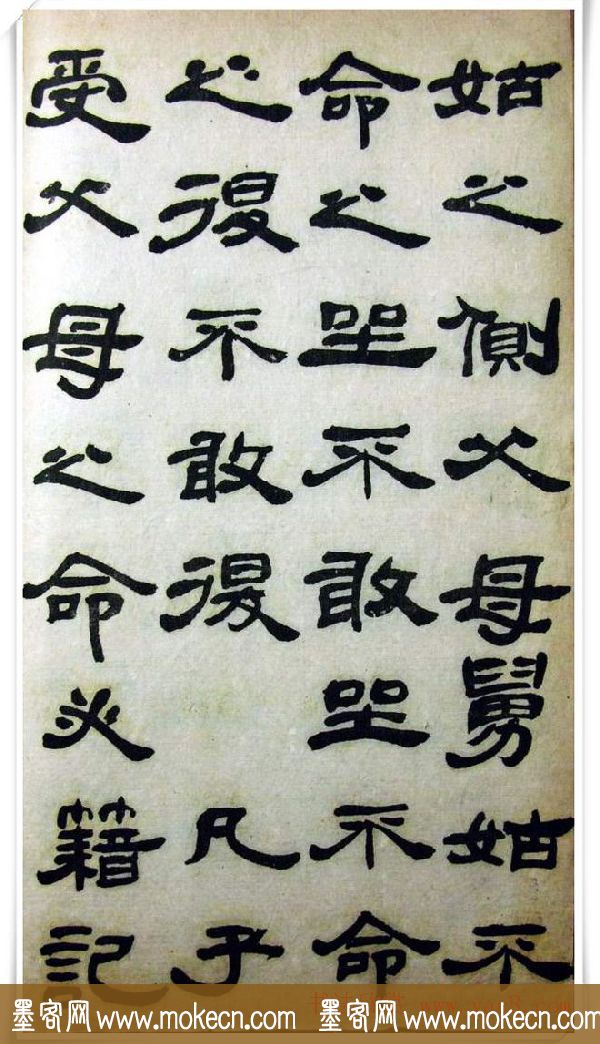 姑之側父母舅姑不
命之坐不敢坐不命
之退不敢退 凡子
受父母之命必籍記
墨客网 www.mokecn.com 墨客网 www.mokecn.com